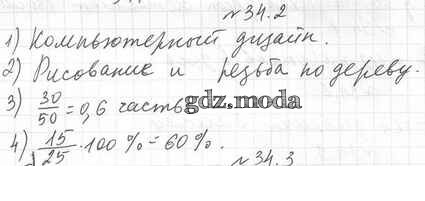 №34.2
1) Компьютерный дизайн.
2) Рисование и резьба по дереву.
3) 30/50 = 0,6 часть
gdz.moda
4) 15/25 · 100 % = 60 %.
№34.3